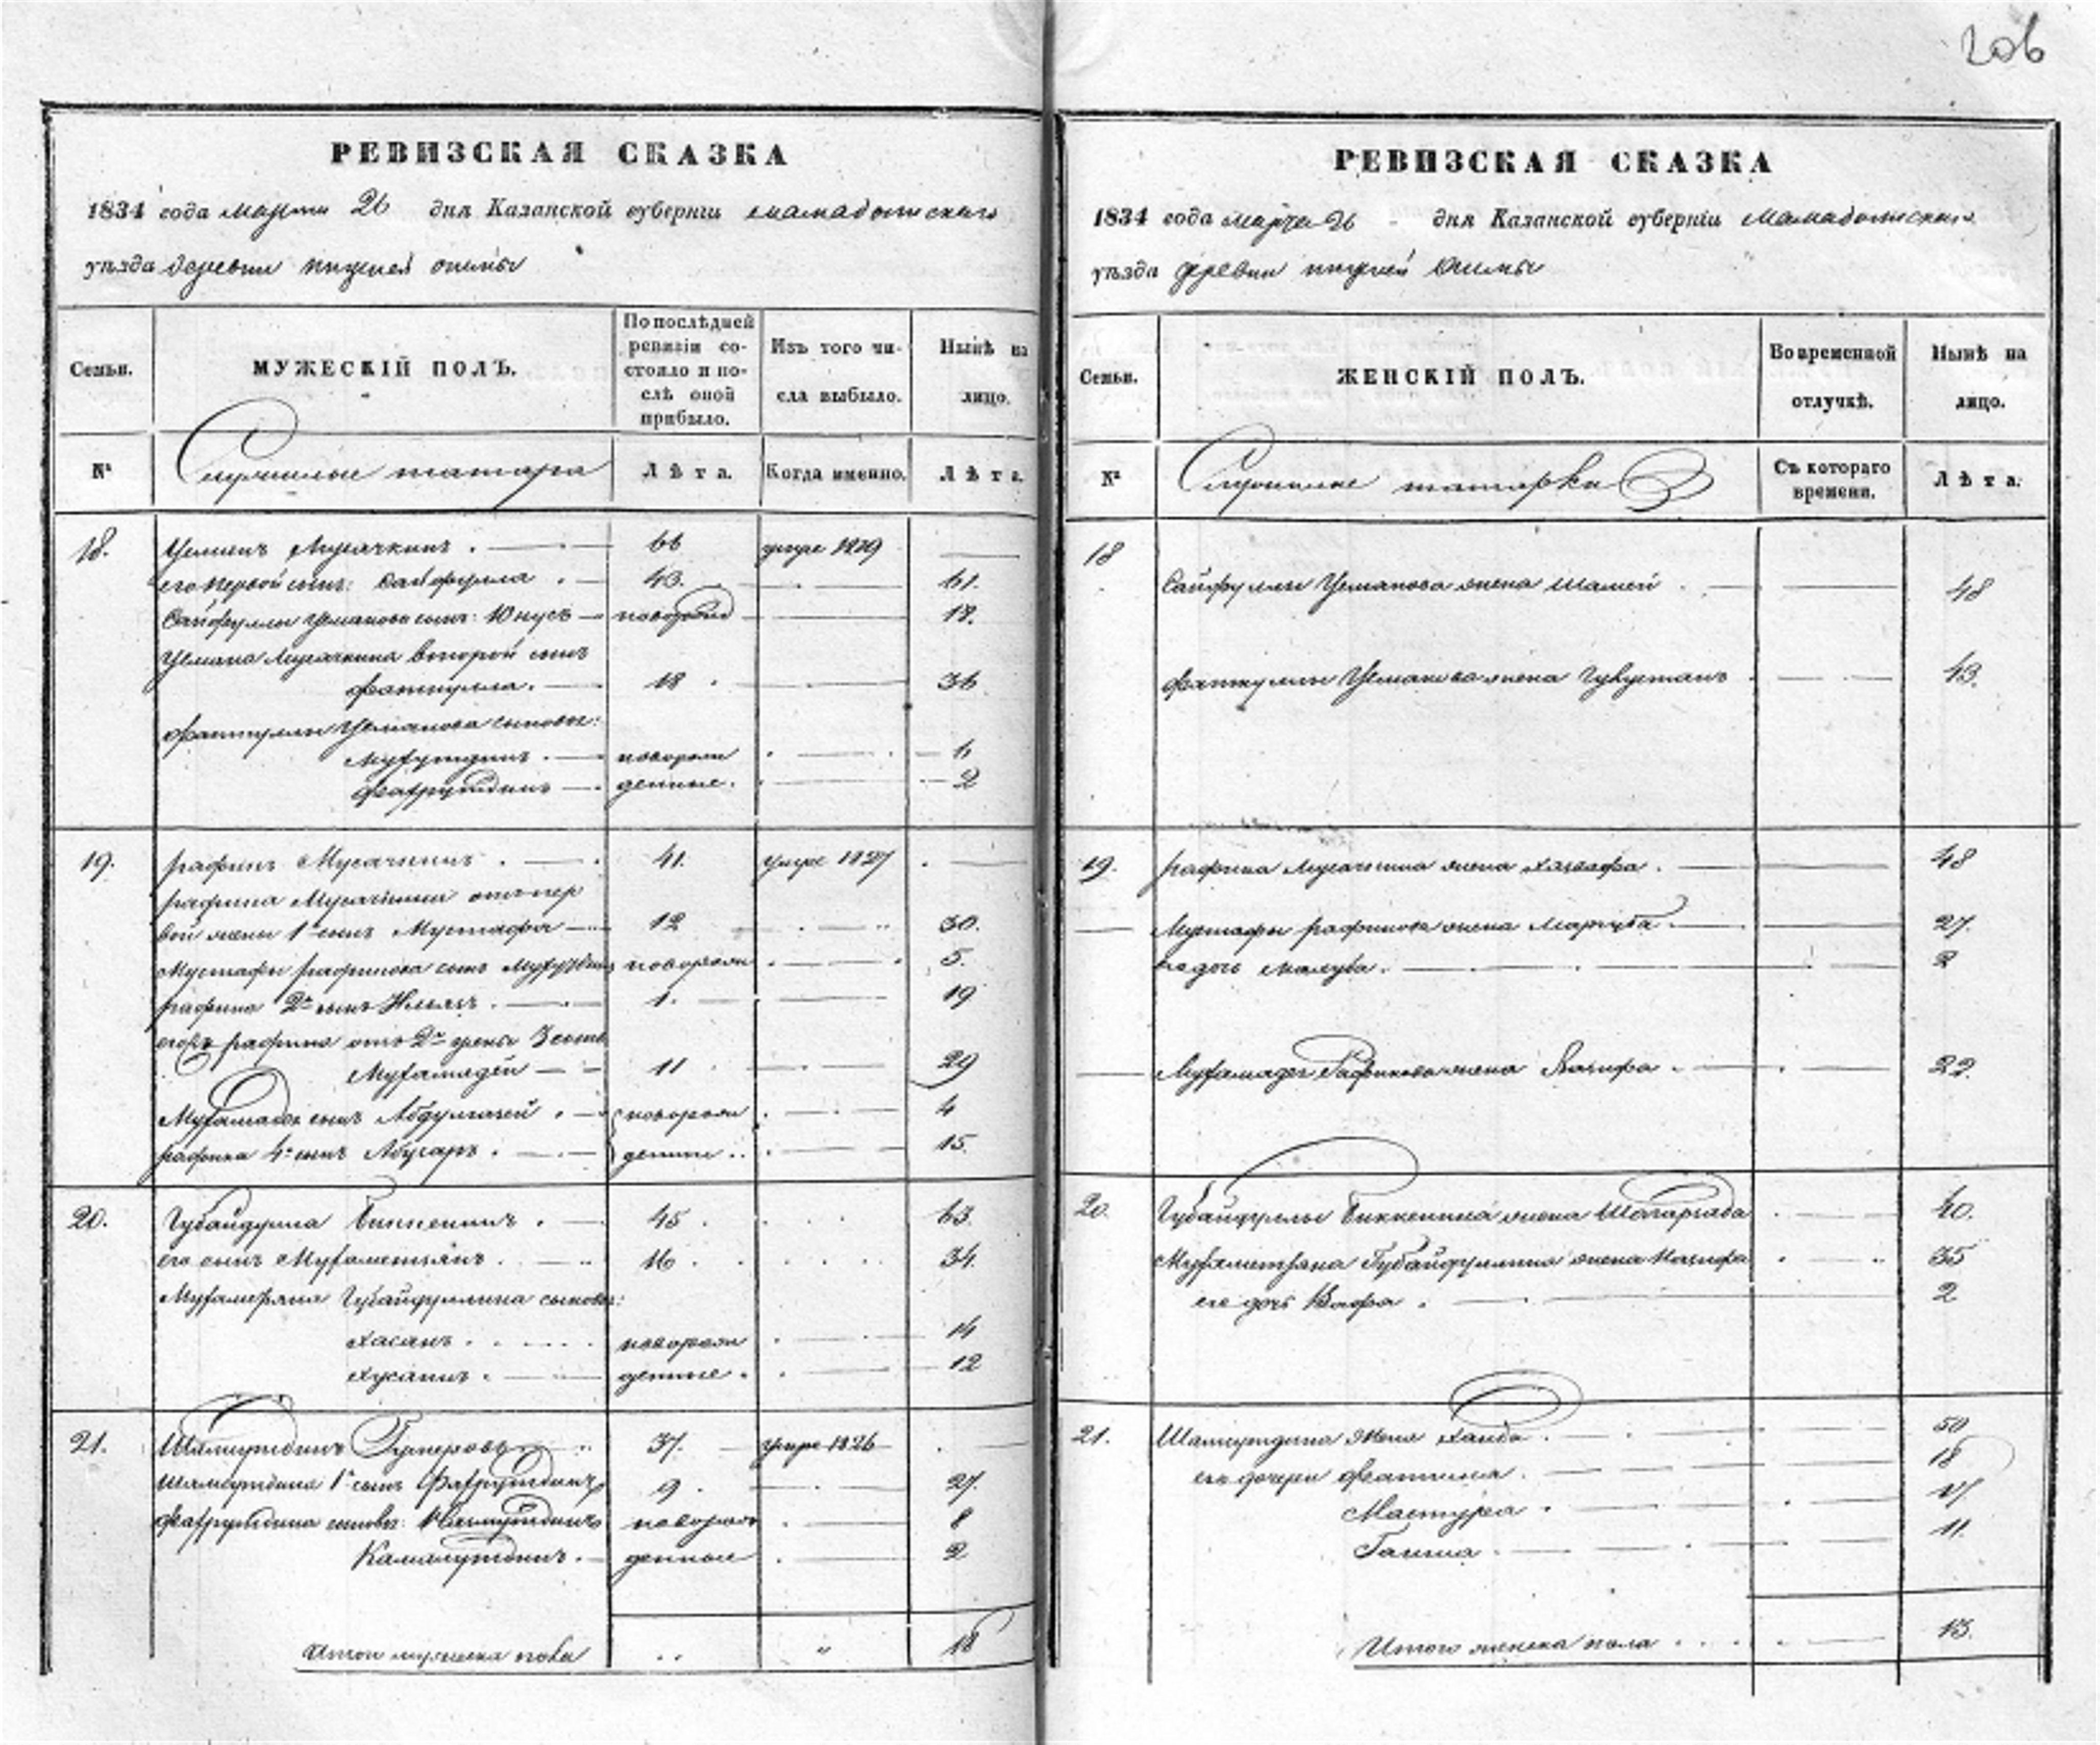 206
РЕВИЗСКАЯ СКАЗКА
1834 года марта 26 дня Казанской губерніи мамадышскаго
уѣзда деревни нижней ошмы
Семьи.
МУЖЕСКІЙ ПОЛЪ.
По послѣдней ревизіи состояло и послѣ оной прибыло.
Изъ того числа выбыло.
Нынѣ на лицо.
№
Служилые татара
Лѣта.
Когда именно.
Лѣта.
18. Усманъ Мусачкинъ . 66 умре 1829
его первой сынъ: Сайфулла . 43. 61.
Сайфуллы Усманова сынъ: Юнусъ новорожд 18.
Усмана Мусачкина второй сынъ
фаткулла. 18 36
фаткуллы Усманова сыновья:
новорож 6
фахрутдинъ денные. 2
19. рафикъ Мусачкинъ . 41. умре 1827
рафика Мусачкина отъ пер
вой жены 1й сынъ Мустафа 12 30.
Мустафы рафикова сынъ новорож 5.
рафика 2й сынъ Ильясъ . 1. 19
рафика отъ 2й жены 3 сынъ
Мухамядей 11 29
сынъ новорож 4
рафика 4й сынъ . денные .. 15.
20. Губайдулла Биккенинъ . 45 . 63.
его сынъ Мухаметзянъ . 16 . 34.
Губайдуллина сыновья:
Хасанъ . новорож 14
Хусаинъ . денные . 12
21. Шамсутдинъ 37. умре 1826
1й сынъ Фахрутдинъ 9 27.
фахрутдина сыновья: новорож 8
Камалутдинъ . денные 2
Итого мужеска пола .. " 18
РЕВИЗСКАЯ СКАЗКА
1834 года марта 26 дня Казанской губерніи Мамадышскаго
уѣзда деревни нижней Ошмы
Семьи.
ЖЕНСКІЙ ПОЛЪ.
Во временной отлучкѣ.
Нынѣ на лицо.
№
Служилые татарки
Съ котораго времени.
Лѣта.
18
Сайфуллы Усманова жена 48
фаткуллы Усманова жена 43.
19. рафика Мусачкина жена 48
Мустафы рафикова жена 27.
ея дочь 2
Рафикова жена 22.
20. Губайдуллы Биккенина жена 40.
Мухаметзяна Губайдуллина жена 35
его дочь 2
21. Шамсутдина жена . 50
его дочери фатима . 18
Мастура . 17
11.
Итого женска пола . 13.